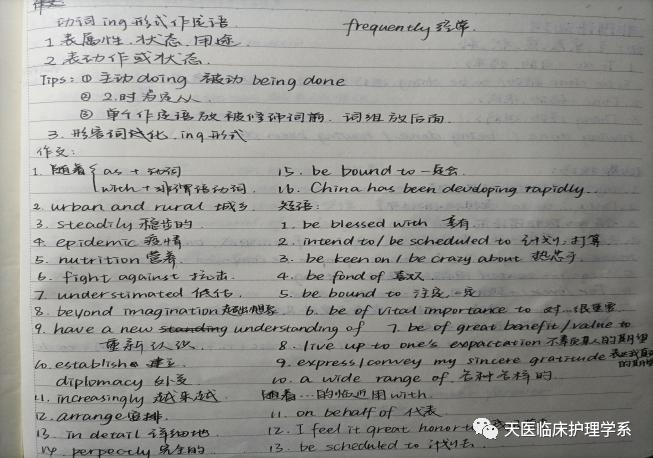 动词ing形式作定语   frequently 经常
1 表属性、状态、用途
2 表动作或状态
Tips: ① 主动doing 被动being done
③ 单个作定语放被修饰词前 词组放后面
3. 形容词 ing形式
作文:
1. 随着 { as + 动词
with + 非谓语动词
2. urban and rural 城乡
3. steadily 稳步的
4. epidemic 疫情
5. nutrition 营养
6. fight against 抗击
7. understimated 低估
8. beyond imagination 超出想象
9. have a new standing understanding of
重新认识
10. establish 建立
diplomacy 外交
11. increasingly 越来越
12. arrange 安排
13. in detail 详细地
14. perpectly 完全的
15. be bound to 一定会
16. China has been devdoping rapidly..
短语:
1. be blessed with 享有
2. intend to / be scheduled to 计划.打算
3. be keen on / be crazy about 热衷于
4. be fond of 喜欢
5. be bound to 注定.一定
6. be of vital importance to 对…很重要
7. be of great benefit / value to
8. live up to one's expactation 不辜负某人的期望
9. express/convey my sincere gratitude
10. a wide range of 各种各样的
随着…的临近用with
11. on behalf of 代表
12. I feel it great honor
13. be scheduled to 计划去
天医临床护理学系